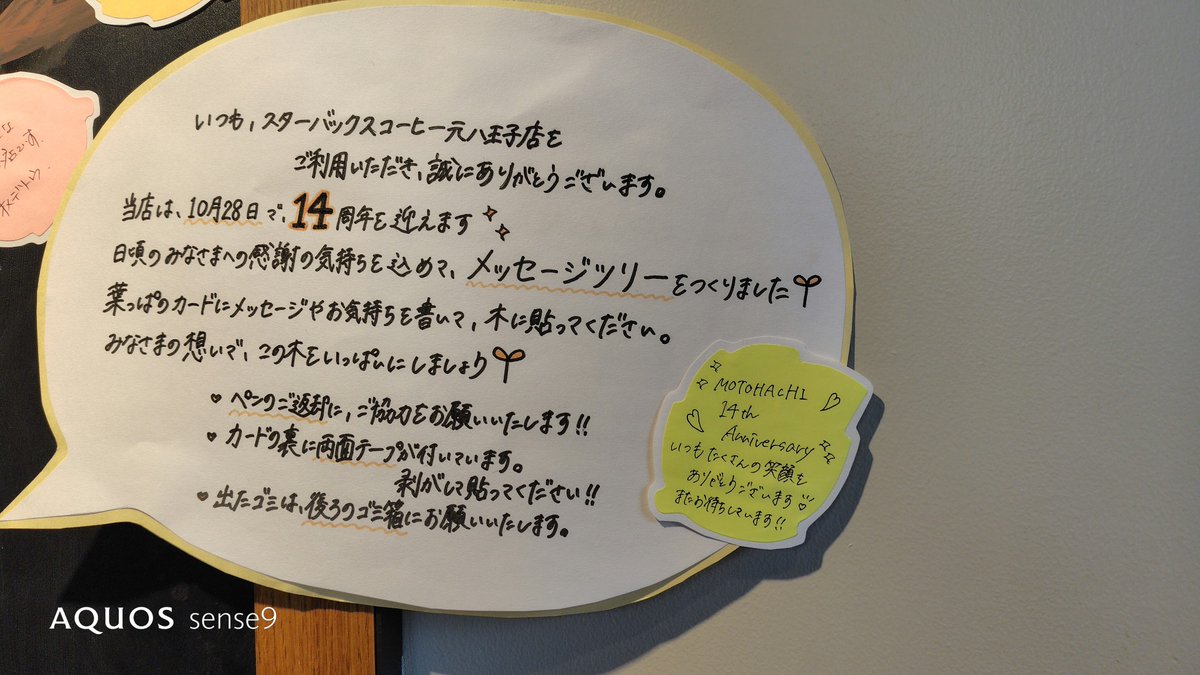 いつも、スターバックスコーヒー元八王子店を
ご利用いただき、誠にありがとうございます。
当店は、10月28日で、14周年を迎えます
日頃のみなさまへの感謝の気持ちを込めて、メッセージツリーをつくりました
葉っぱのカードにメッセージやお気持ちを書いて、木に貼ってください。
みなさまの想いで、この木をいっぱいにしましょう
♥ ペンのご返却に、ご協力をお願いいたします!!
♥ カードの裏に両面テープが付いています。
剥がして貼ってください!!
♥ 出たゴミは、後ろのゴミ箱にお願いいたします。
MOTOHACHI
14th
Anniversary
いつもたくさんの笑顔を
ありがとうございます
またお待ちしています!!
オメデトウ
AQUOS sense9